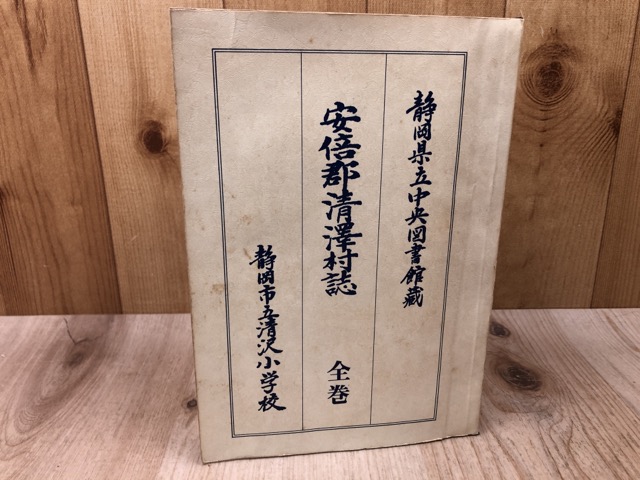 静岡県立中央図書館蔵
安倍郡清澤村誌
全巻
静岡市立清沢小学校